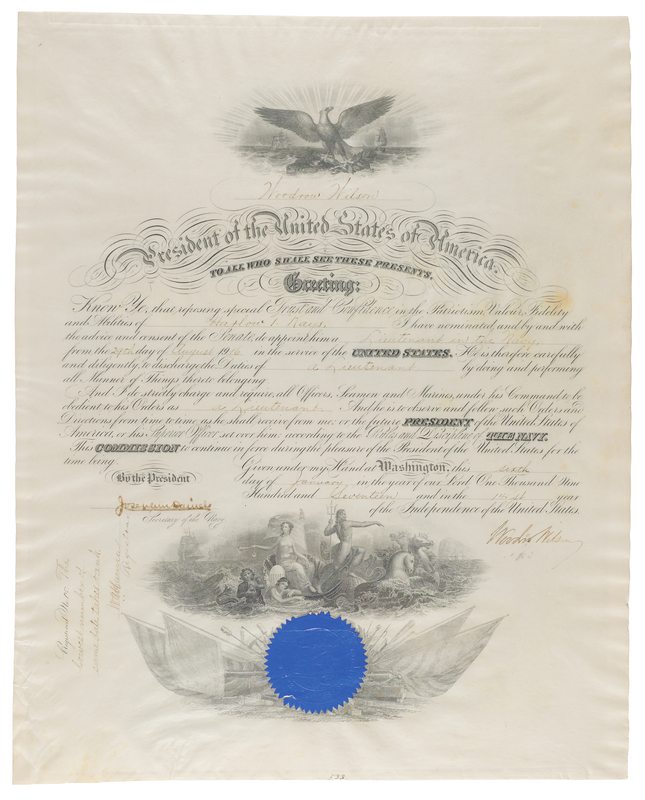 Woodrow Wilson
President of the United States of America.
TO ALL WHO SHALL SEE THESE PRESENTS,
Greeting:
Know Ye, that reposing special Trust and Confidence in the Patriotism, Valour, Fidelity
and Abilities of Harlow T. Kays I have nominated, and by and with
the advice and consent of the Senate, do appoint him a Lieutenant in the Navy
from the 29th day of August 1916 in the service of the UNITED STATES. He is therefore carefully
and diligently to discharge the Duties of a Lieutenant by doing and performing
all Manner of Things thereto belonging.
And I do strictly charge and require all Officers, Seamen and Marines, under his Command to be
obedient to his Orders as a Lieutenant And he is to observe and follow such Orders and
Directions from time to time as he shall receive from me, or the future PRESIDENT of the United States of
America, or his Superior Officer set over him, according to the Rules and Discipline of THE NAVY.
This COMMISSION to continue in force during the pleasure of the President of the United States for the
time being.
Given under my Hand at Washington, this sixth
By the President
day of January in the year of our Lord One Thousand Nine
Hundred and Seventeen and in the 141st year
of the Independence of the United States.
Josephus Daniels
Secretary of the Navy
Woodrow Wilson
lowest number of
same date takes rank